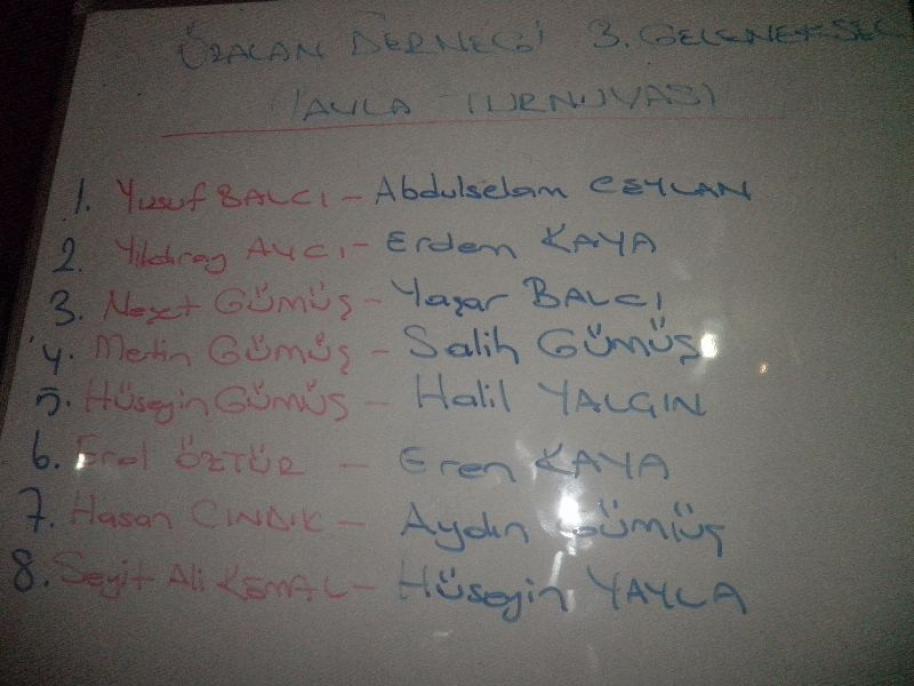 ÖZALAN DERNEĞİ 3. GELENEKSEL
TAVLA TURNUVASI
1. Yusuf BALCI - Abdulselam CEYLAN
2. Yıldıray AVCI - Erdem KAYA
3. GÜMÜŞ - Yaşar BALCI
4. Metin GÜMÜŞ - Salih GÜMÜŞ
5. Hüseyin GÜMÜŞ - Halil YALGIN
6. Erol ÖZTÜR - Eren KAYA
7. Hasan CINDIK - Aydın GÜMÜŞ
8. Seyit Ali KEMAL - Hüseyin YAYLA